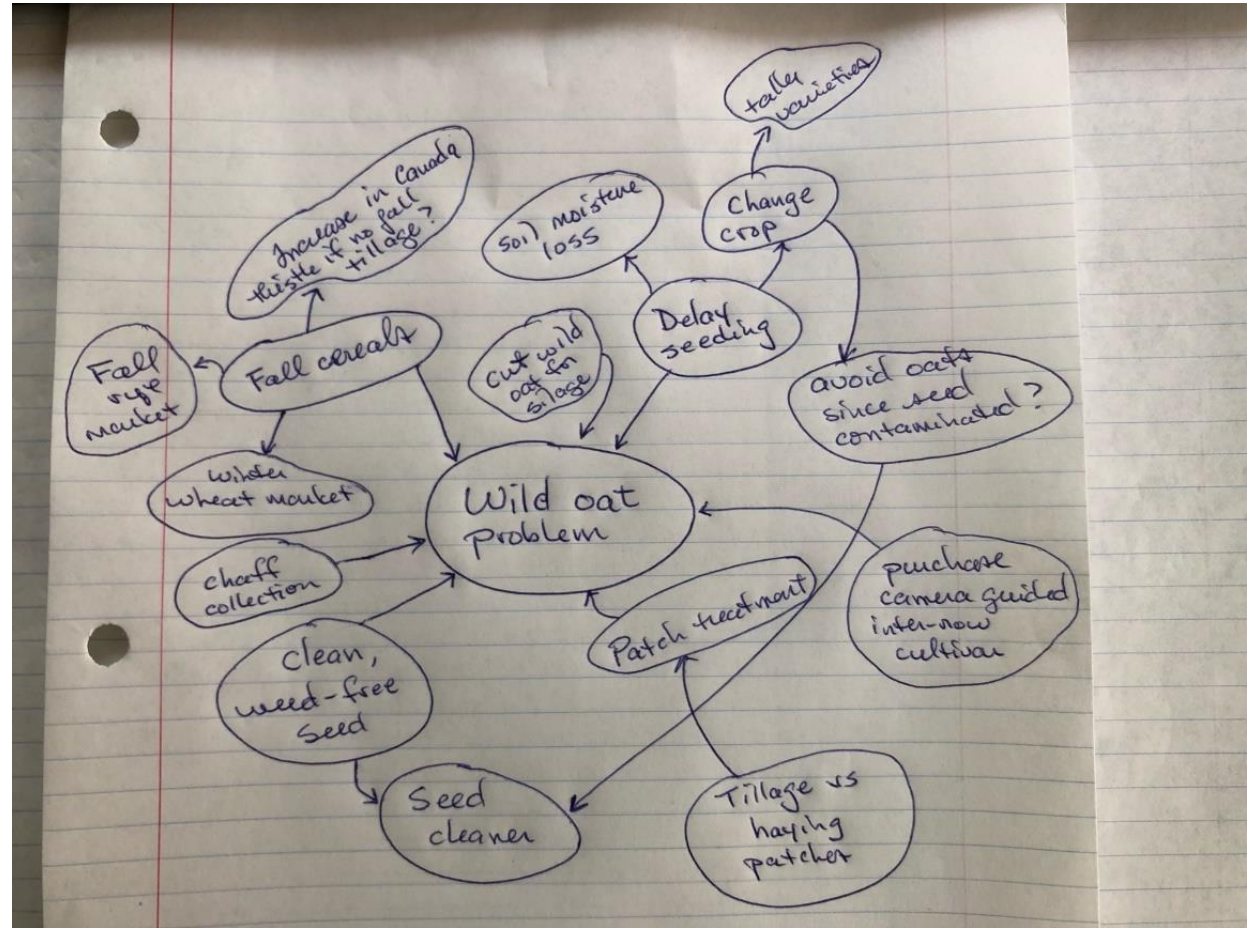 taller
varieties
Increase in Canada
thistle if no fall
tillage?
soil moisture
loss
Change
crop
Delay
seeding
Fall
rye
market
Fall cereals
cut wild
oat for
silage
avoid oats
since seed
contaminated?
Winter
wheat market
Wild oat
problem
chaff
collection
purchase
camera guided
inter-row
cultivar
Patch treatment
clean,
weed-free
seed
Seed
cleaner
Tillage vs
haying
patches